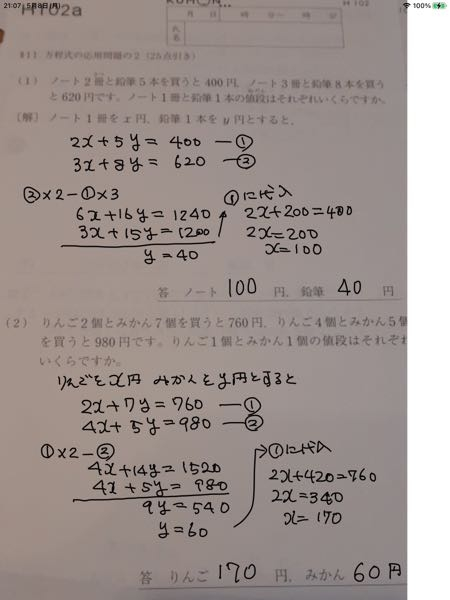 21:07 5月8日(月)
100%
H102a
KUMON
H 102
月 日 時 分〜 時 分
氏名
#11 方程式の応用問題の2 (25点引き)
(1) ノート2冊と鉛筆5本を買うと400円, ノート3冊と鉛筆8本を買う
と620円です。ノート1冊と鉛筆1本の値段はそれぞれいくらですか。
〔解〕 ノート1冊をx円, 鉛筆1本をy円とすると,
2x+5y=400 ー①
3x+8y=620 ー②
②×2-①×3
6x+16y=1240
3x+15y=1200
y=40
①に代入
2x+200=400
2x=200
x=100
答 ノート 100 円, 鉛筆 40 円
(2) りんご2個とみかん7個を買うと760円, りんご4個とみかん5個
を買うと980円です。りんご1個とみかん1個の値段はそれぞれ
いくらですか。
りんごをx円 みかんをy円とすると
2x+7y=760 ー①
4x+5y=980 ー②
①×2-②
4x+14y=1520
4x+5y=980
9y=540
y=60
①に代入
2x+420=760
2x=340
x=170
答 りんご 170 円, みかん 60円